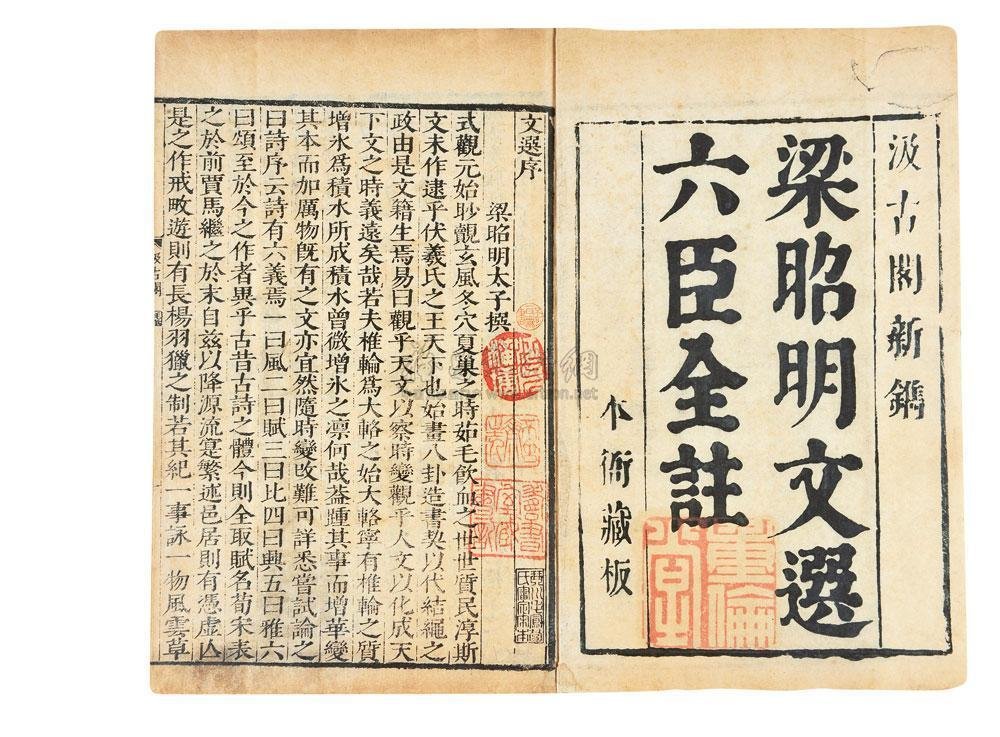 汲古閣新鐫
梁昭明文選
六臣全註
本衙藏板
文選序
梁昭明太子撰
式觀元始眇覿玄風冬穴夏巢之時茹毛飲血之世世質民淳斯
文未作逮乎伏羲氏之王天下也始畫八卦造書契以代結繩之
政由是文籍生焉易曰觀乎天文以察時變觀乎人文以化成天
下文之時義遠矣哉若夫椎輪爲大輅之始大輅寧有椎輪之質
增冰爲積水所成積水曾微增冰之凛何哉葢踵其事而增華變
其本而加厲物旣有之文亦宜然隨時變改難可詳悉嘗試論之
曰詩序云詩有六義焉一曰風二曰賦三曰比四曰興五曰雅六
曰頌至於今之作者異乎古昔古詩之體今則全取賦名荀宋表
之於前賈馬繼之於末自兹以降源流寔繁述邑居則有憑虛亾
是之作戒畋遊則有長楊羽獵之制若其紀一事詠一物風雲草
汲古閣